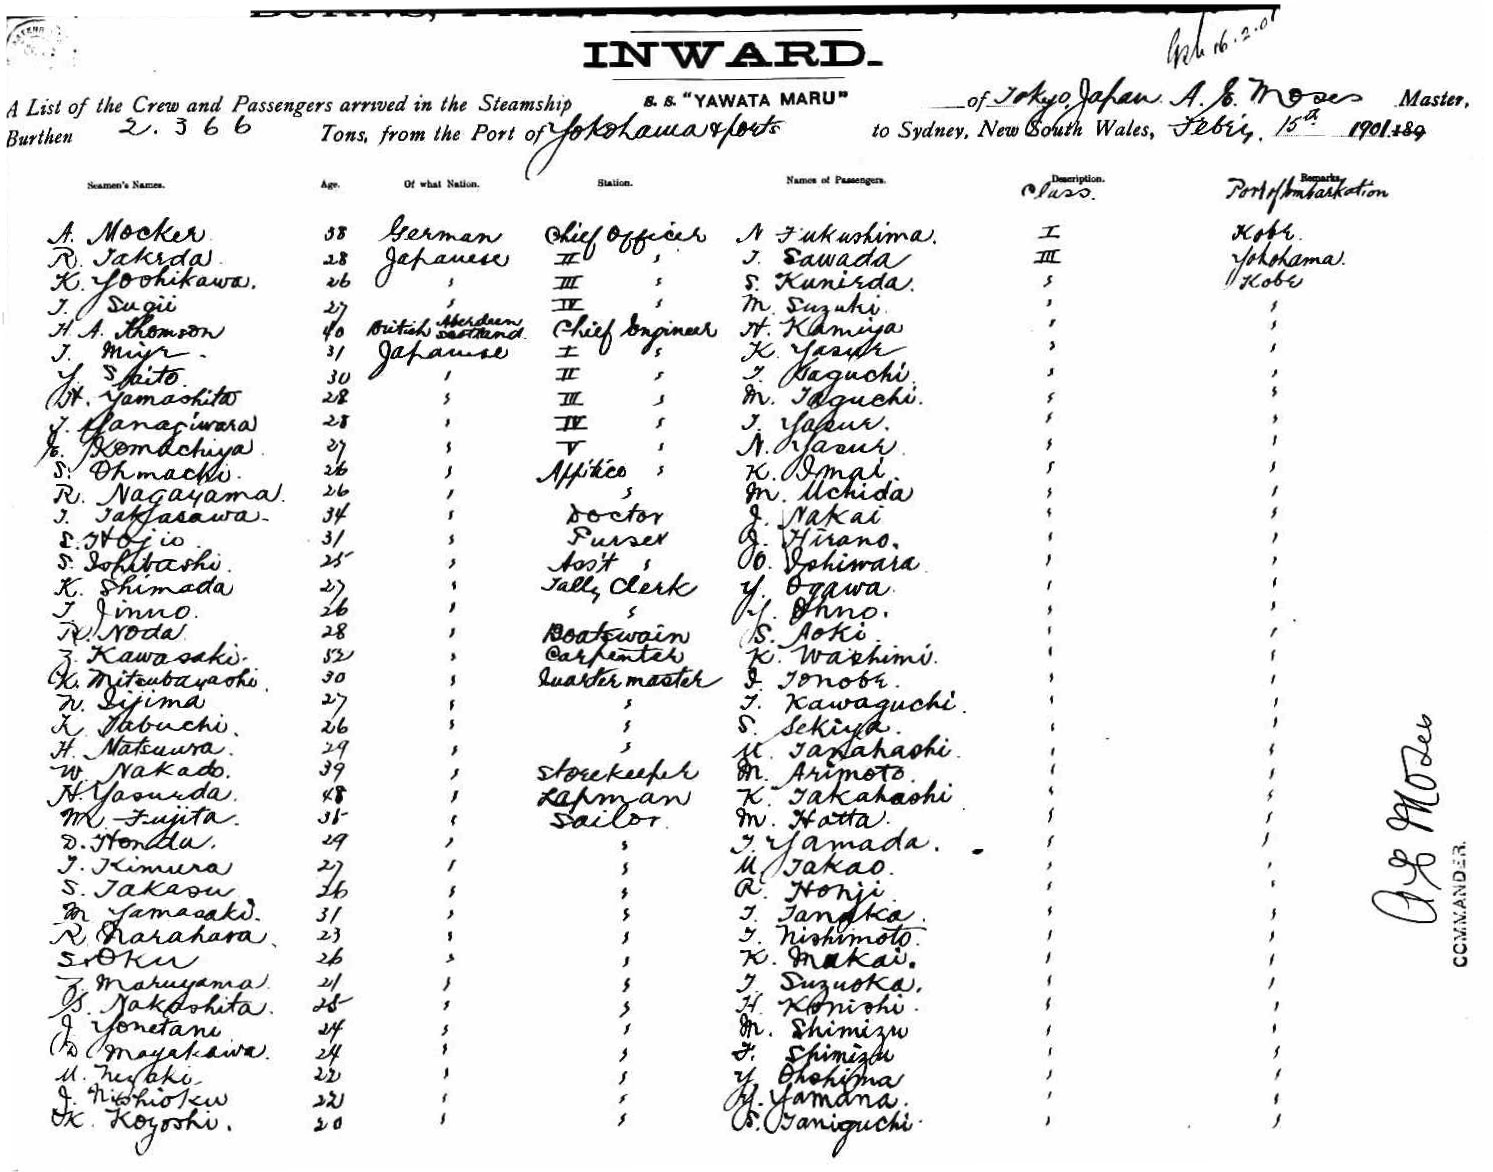 INWARD.
16.2.01
A List of the Crew and Passengers arrived in the Steamship S. S. "YAWATA MARU" of Tokyo, Japan. A. E. Moses Master,
Burthen 2.366 Tons, from the Port of Yokohama & ports to Sydney, New South Wales, Feb'y. 15th 1901. 189
Seamen's Names. Age. Of what Nation. Station. Names of Passengers. Description. Remarks.
Class. Port of Embarkation
A. Mocker 38 German Chief Officer N Fukushima. I Kobe
R. Takeda 28 Japanese II " T. Sawada III Yokohama.
K. Yoshikawa. 26 " III " S. Kunieda. " Kobe
T. Sugii 27 " IV " M. Suzuki " "
H. A. Thomson 40 British Aberdeen Scotland Chief Engineer H. Kamiya " "
T. Miye. 31 Japanese I " K. Yasue " "
Y. Saito 30 " II " T. Taguchi " "
H. Yamashita 28 " III " M. Taguchi. " "
T. Yanagiwara 28 " IV " T. Yasue. " "
E. Komachiya 27 " V " N. Yasue " "
S. Ohmachi. 26 " " K. Imai " "
R. Nagayama 26 " " M. Uchida " "
T. Takasawa 34 " Doctor J. Nakai " "
S. Hojio 31 " Purser J. Hirano. " "
S. Ishibashi. 25 " Ass't " O. Ishiwara " "
K. Shimada 27 " Tally Clerk Y. Ogawa " "
T. Jinno. 26 " " Y. Ohno. " "
R. Noda 28 " Boatswain S. Aoki " "
Z. Kawasaki 52 " Carpenter K. Washimi. " "
K. Mitsubayashi 30 " Quartermaster I. Tonobe. " "
N. Iijima 27 " " T. Kawaguchi. " "
K. Tabuchi. 26 " " S. Sekiya. " "
H. Matsuura. 29 " " U. Tanahashi " "
W. Nakado. 39 " Storekeeper M. Arimoto. " "
H. Yasueda. 48 " Lapman K. Takahashi " "
M. Fujita. 35 " Sailor. M. Hatta. " "
D. Honda. 29 " " T. Yamada. " "
T. Kimura 27 " " U. Takao. " "
S. Takasu 26 " " R. Honji " "
M. Yamasaki. 31 " " T. Tanaka. " "
R. Narahara 23 " " T. Nishimoto. " "
S. Oku 26 " " K. Mukai. " "
Z. Maruyama 21 " " T. Suzuoka. " "
S. Nakashita. 25 " " H. Konishi. " "
J. Yonetani 24 " " M. Shimizu " "
D. Mayakawa. 24 " " F. Shimizu " "
U. 22 " " Y. Ohshima " "
J. Nishioku 22 " " Y. Yamana. " "
K. Koyoshi. 20 " " S. Taniguchi. " "
A E Moses
COMMANDER.